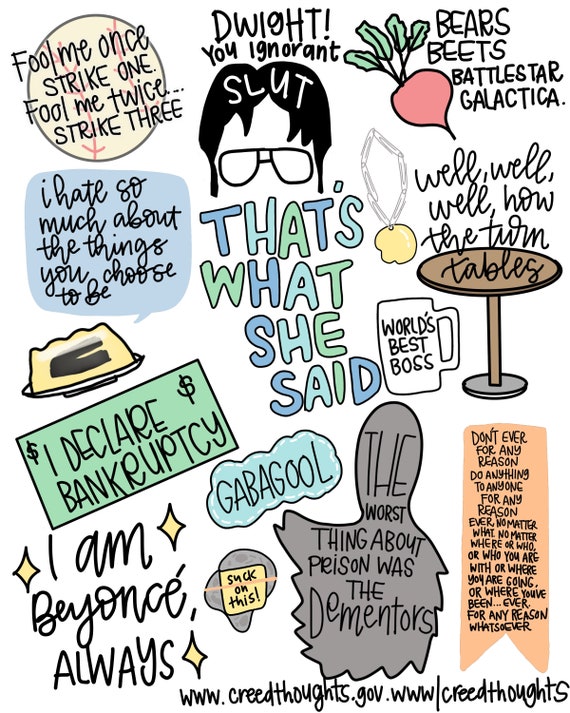 Fool me once
STRIKE ONE.
Fool me twice...
STRIKE THREE
DWIGHT!
You Ignorant
SLUT
BEARS
BEETS
BATTLESTAR
GALACTICA.
i hate so
much about
the things
you choose
to be
THAT'S
WHAT
SHE
SAID
well, well,
well, how
the turn
tables
WORLD'S
BEST
BOSS
$ $
I DECLARE
BANKRUPTCY
GABAGOOL
THE
WORST
THING ABOUT
PRISON WAS
THE
Dementors
DON'T EVER
FOR ANY
REASON
DO ANYTHING
TO ANYONE
FOR ANY
REASON
EVER, NO MATTER
WHAT. NO MATTER
WHERE OR WHO,
OR WHO YOU ARE
WITH OR WHERE
YOU ARE GOING,
OR WHERE YOU'VE
BEEN... EVER,
FOR ANY REASON
WHATSOEVER
I am
Beyoncé,
ALWAYS
suck
on
this!
www.creedthoughts.gov.www\creedthoughts